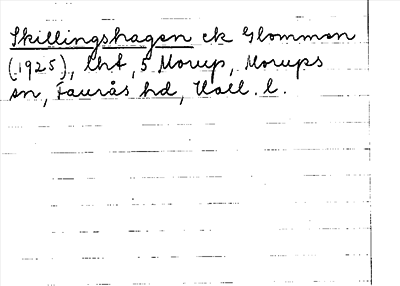 Skillingshagen ek Glommen
(1925), lht, 5 Morup, Morups
sn, Faurås hd, Hall. l.